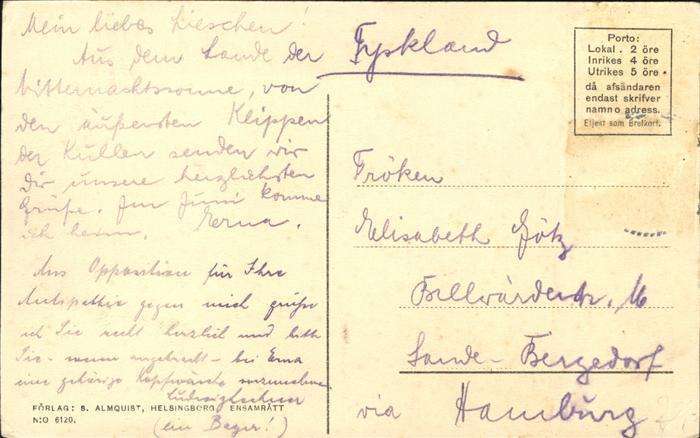 Mein liebes Lieschen!
Aus dem Lande der
Mitternachtssonne, von
den äußersten Klippen
der Kullen senden wir
Dir unsere herzlichsten
Grüße. Im Juni komme
ich heim. Erna.
Aus Opposition für Ihre
Antipathie gegen mich grüße
ich Sie recht herzlich und bitte
Sie - wenn angebracht - bei Erna
eine gehörige Kopfwäsche vorzunehmen
(ein Bayer!)
FÖRLAG: B. ALMQUIST, HELSINGBORG ENSAMRÄTT
N:O 6120.
Tyskland
Porto:
Lokal . 2 öre
Inrikes 4 öre
Utrikes 5 öre
då afsändaren
endast skrifver
namn o. adress.
Eljest som Brefkort.
Fröken
Elisabeth Götz
Sande - Bergedorf
via Hamburg